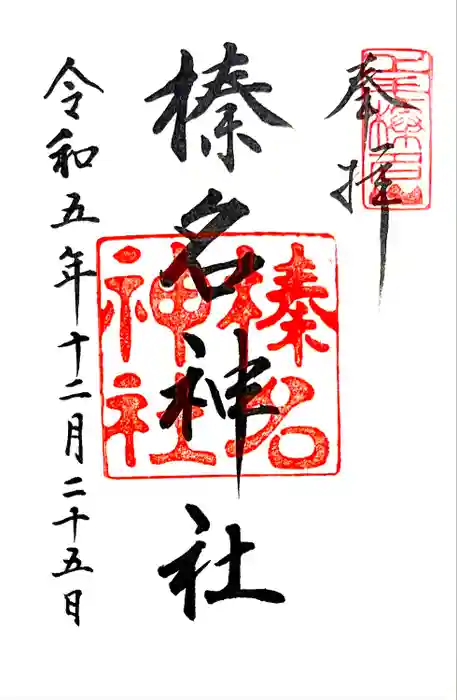 奉拝
上毛榛名山
榛名神社
榛名
神社
令和五年十二月二十五日